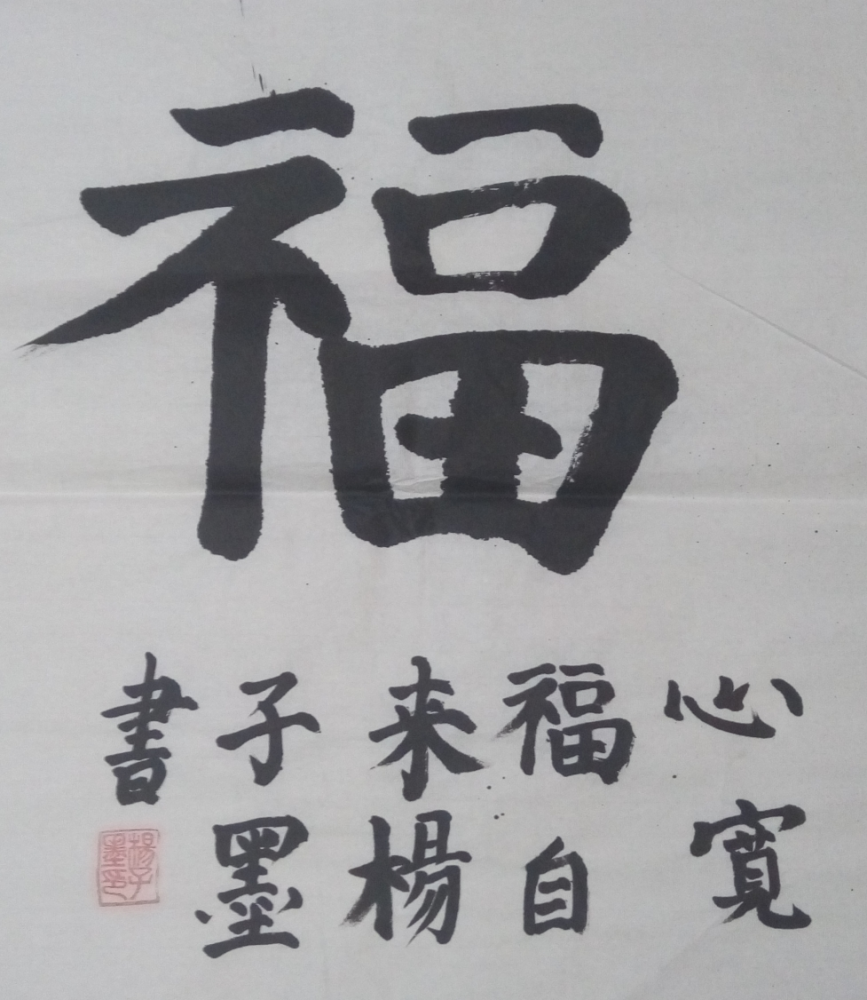 福
心寬
福自
来楊
子墨
書
楊子
墨印